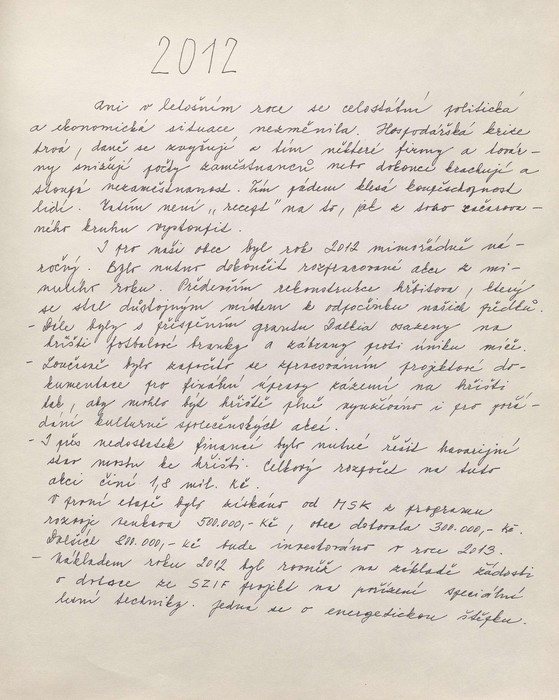 2012
Ani v letošním roce se celostátní politická
a ekonomická situace nezměnila. Hospodářská krize
trvá, daně se zvyšují a tím některé firmy a továr-
ny snižují počty zaměstnanců nebo dokonce krachují a
stoupá nezaměstnanost. Tím pádem klesá koupěschopnost
lidí. Zatím není „recept" na to, jak z toho začarova-
ného kruhu vystoupit.
I pro naši obec byl rok 2012 mimořádně ná-
ročný. Bylo nutno dokončit rozpracované akce z mi-
nulého roku. Především rekonstrukce hřbitova, který
se stal důstojným místem k odpočinku našich předků.
- Dále byly s přispěním grantu Dalkia osazeny na
hřišti fotbalové branky a zábrany proti úniku míčů.
- Současně bylo započato se zpracováním projektové do-
kumentace pro finální úpravy zázemí na hřišti
tak, aby mohlo být hřiště plně využíváno i pro pořá-
dání kulturně společenských akcí.
- I přes nedostatek financí bylo nutné řešit havarijní
stav mostu ke hřišti. Celkový rozpočet na tuto
akci činí 1,8 mil. Kč.
V první etapě bylo získáno od MSK z programu
rozvoje venkova 500.000,- Kč, obec dotovala 300.000,- Kč.
Dalších 800.000,- Kč bude investováno v roce 2013.
- Základem roku 2012 byl rovněž na základě žádosti
o dotace ze SZIF projekt na pořízení speciální
lesní techniky. Jedná se o energetickou štěpku.